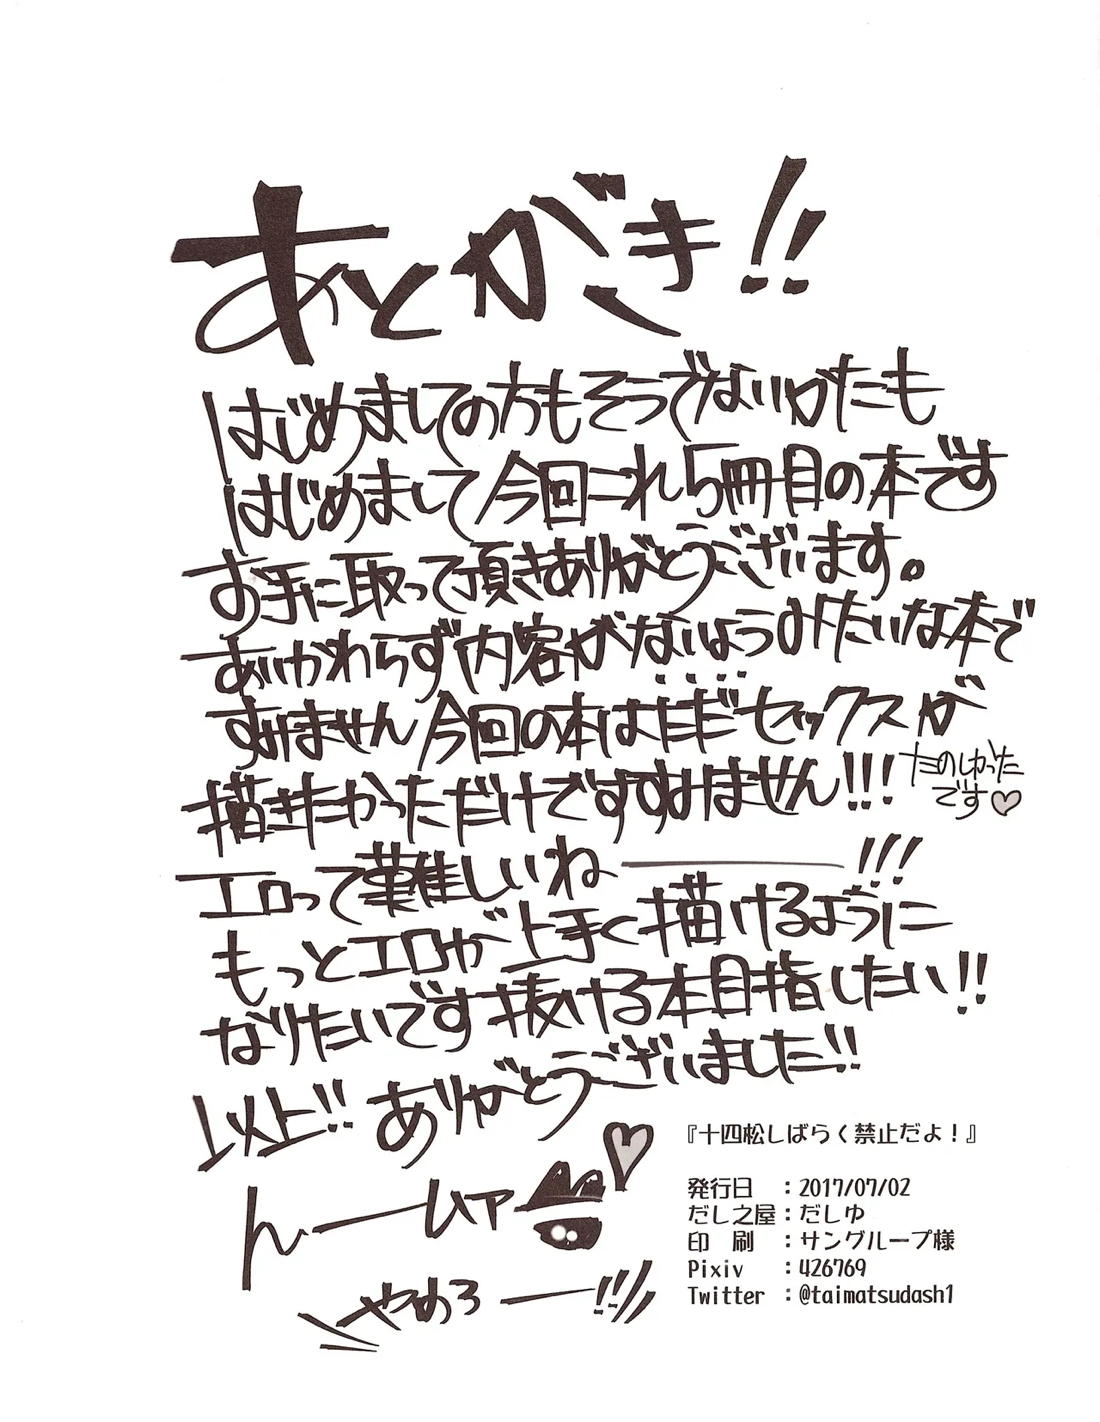 あとがき!!
はじめましての方もそうでないかたも
はじめまして今回これ5冊目の本です
お手に取って頂きありがとうございます。
あいかわらず内容がないようみたいな本で
すみません今回の本はただセックスが
描きたかっただけですすみません!!!
たのしかった
です♡
エロって難しいね――!!!
もっとエロが上手く描けるように
なりたいです抜ける本目指したい!!
以上!! ありがとうございました!!
んームァ
やめろー!!!
『十四松しばらく禁止だよ!』
発行日 :2017/07/02
だし之屋:だしゆ
印 刷 :サングループ様
Pixiv :426769
Twitter :@taimatsudash1